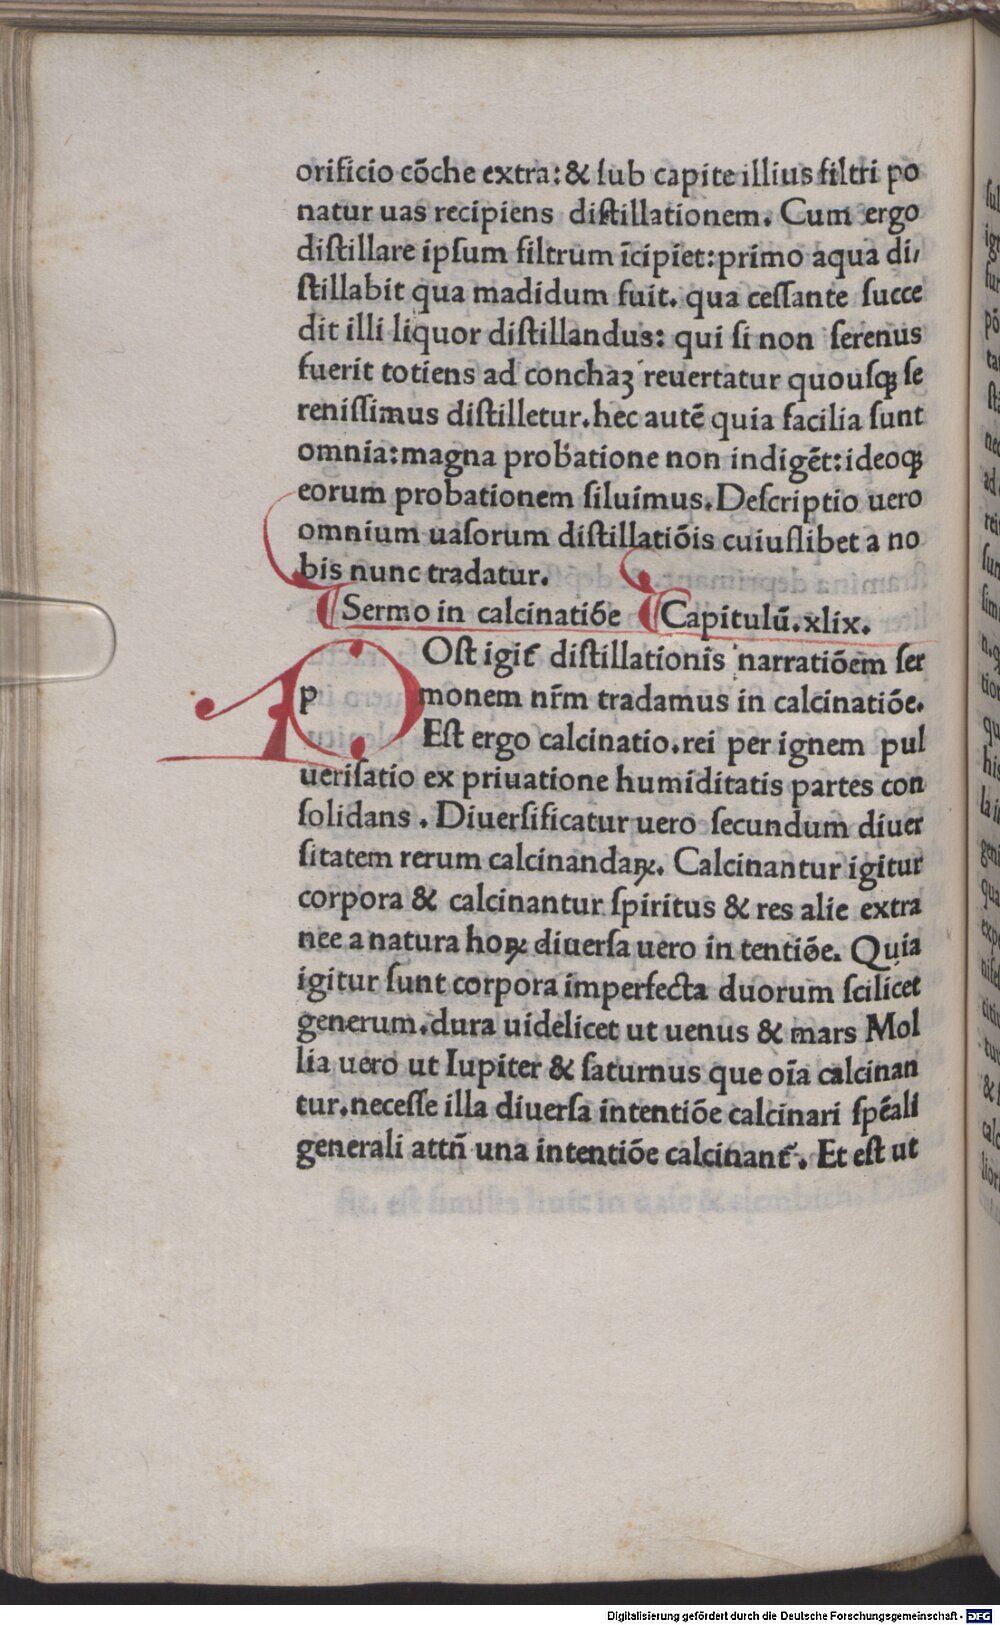 orificio cōche extra: & ſub capite illius filtri po
natur uas recipiens diſtillationem. Cum ergo
diſtillare ipſum filtrum īcipiet: primo aqua di/
ſtillabit qua madidum fuit. qua ceſſante ſucce
dit illi liquor diſtillandus: qui ſi non ſerenus
fuerit totiens ad conchaꝫ reuertatur quouſqꝫ ſe
reniſſimus diſtilletur. hec autē quia facilia ſunt
omnia: magna probatione non indigēt: ideoqꝫ
eorum probationem ſiluimus. Deſcriptio uero
omnium uaſorum diſtillatiōis cuiuſlibet a no
bis nunc tradatur.
¶ Sermo in calcinatiōe ¶ Capitulū. xlix.
p Oſt igit̄ diſtillationis narratiōem ſer
monem nr̄m tradamus in calcinatiōe.
Eſt ergo calcinatio. rei per ignem pul
ueriſatio ex priuatione humiditatis partes con
ſolidans. Diuerſificatur uero ſecundum diuer
ſitatem rerum calcinandaꝝ. Calcinantur igitur
corpora & calcinantur ſpiritus & res alie extra
nee a natura hoꝝ diuerſa uero in tentiōe. Quia
igitur ſunt corpora imperfecta duorum ſcilicet
generum. dura uidelicet ut uenus & mars Mol
lia uero ut Iupiter & ſaturnus que oīa calcinan
tur. neceſſe illa diuerſa intentiōe calcinari ſpēali
generali attn̄ una intentiōe calcinant̄. Et eſt ut
Digitalisierung gefördert durch die Deutsche Forschungsgemeinschaft - DFG